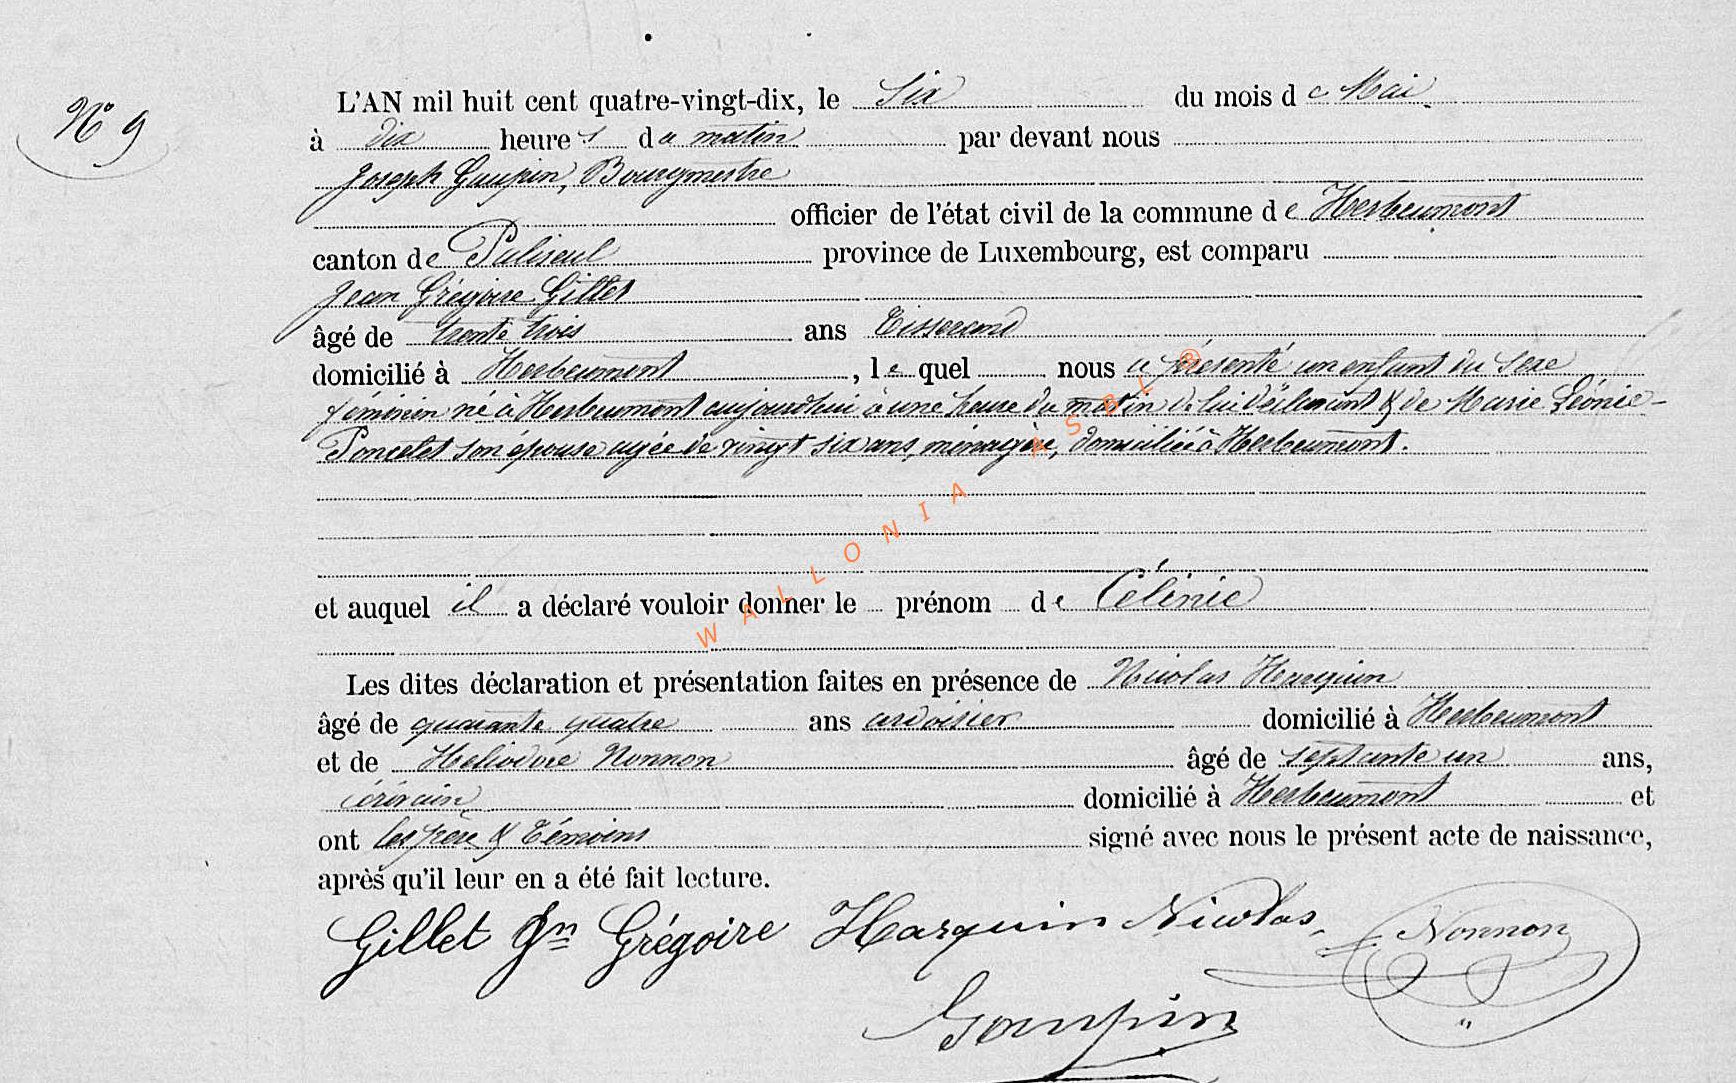 N° 9
L'AN mil huit cent quatre-vingt-dix, le Six du mois de Mai
à dix heures du matin par devant nous
Joseph Gaupin, Bourgmestre
officier de l'état civil de la commune de Herbeumont
canton de Paliseul province de Luxembourg, est comparu
Jean Grégoire Gillet
âgé de trente trois ans Tisserand
domicilié à Herbeumont, le quel nous a présenté un enfant du sexe
féminin né à Herbeumont aujourd'hui à une heure du matin de lui déclarant & de Marie Léonie
Poncelet son épouse agée de vingt six ans, ménagère, domiciliée à Herbeumont.
et auquel il a déclaré vouloir donner le prénom de Célinie
Les dites déclaration et présentation faites en présence de Nicolas Harquin
âgé de quarante quatre ans ardoisier domicilié à Herbeumont
et de Heliodore Nonnon âgé de septante un ans,
écrivain domicilié à Herbeumont et
ont les père & Témoins signé avec nous le présent acte de naissance,
après qu'il leur en a été fait lecture.
Gillet Jn Grégoire Harquin Nicolas Nonnon
Gaupin
WALLONIA ASBL ®